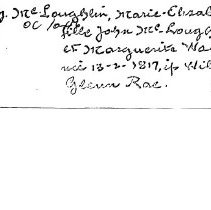 McLoughlin, Marie-Elisab
fille John McLough
et Marguerite Wa
née 13-2-1817, ép Wil
Glenn Rae.